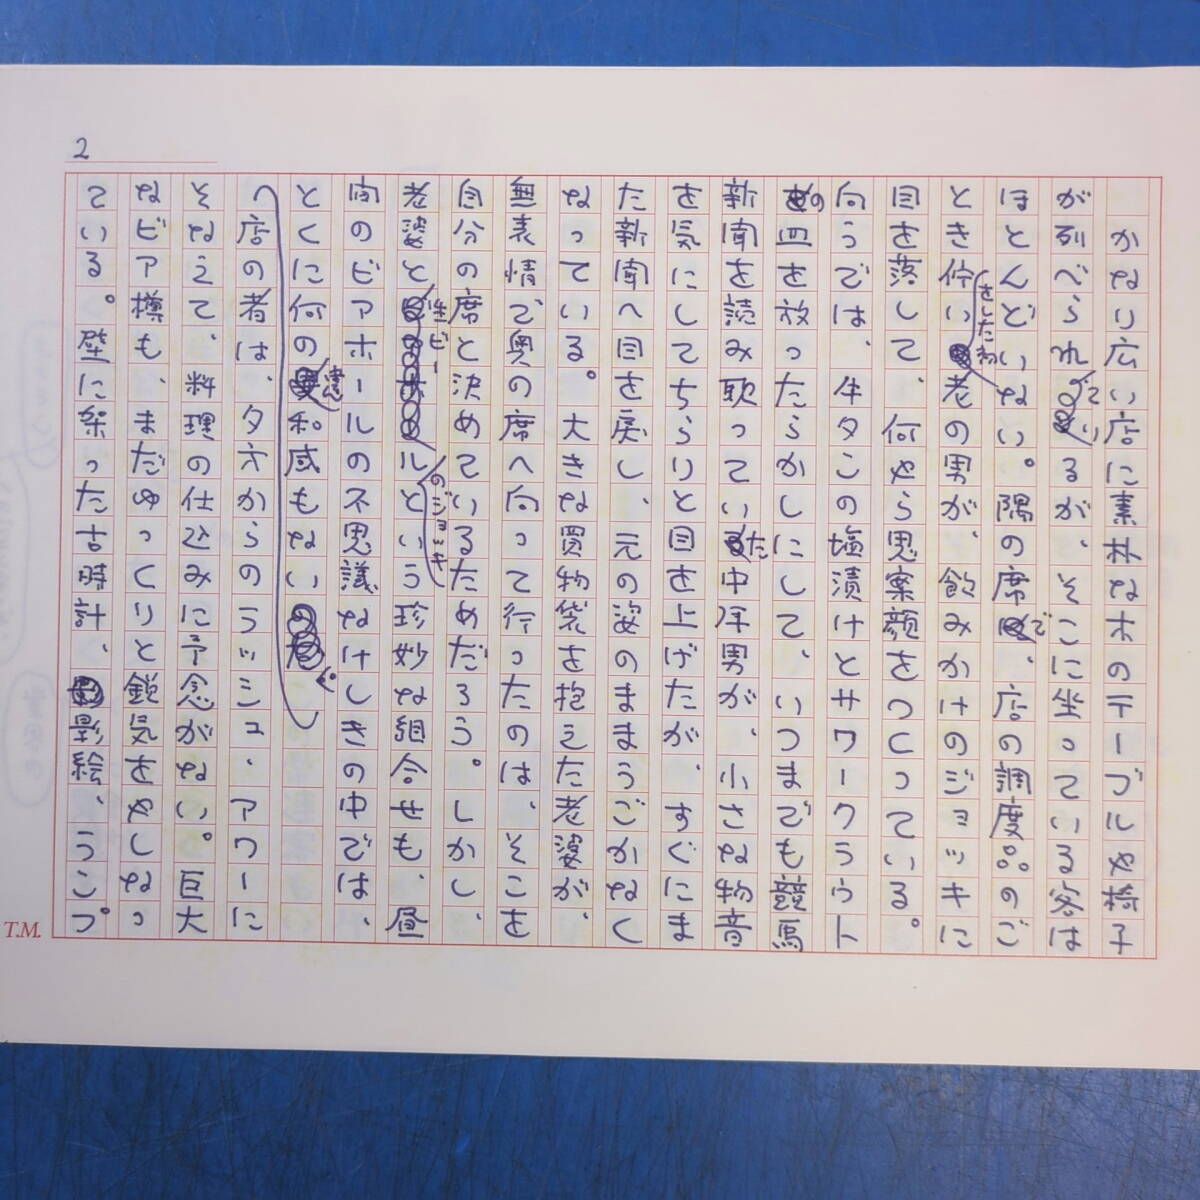 2
かなり広い店に素朴な木のテーブルや椅子
が列べられているが、そこに坐っている客は
ほとんどいない。隅の席で、店の調度品のご
とき佇いをした初老の男が、飲みかけのジョッキに
目を落して、何やら思案顔をつくっている。
向うでは、牛タンの塩漬けとサワークラウト
の皿を放ったらかしにして、いつまでも競馬
新聞を読み耽っていた中年男が、小さな物音
を気にしてちらりと目を上げたが、すぐにま
た新聞へ目を戻し、元の姿のままうごかなく
なっている。大きな買物袋を抱えた老婆が、
無表情で奥の席へ向って行ったのは、そこを
自分の席と決めているためだろう。しかし、
老婆と生ビールのジョッキという珍妙な組合せも、昼
間のビアホールの不思議なけしきの中では、
とくに何の違和感もない。
店の者は、夕方からのラッシュ・アワーに
そなえて、料理の仕込みに予念がない。巨大
なビア樽も、まだゆっくりと鋭気をやしなっ
ている。壁に架った古時計、影絵、うこプ
T.M.